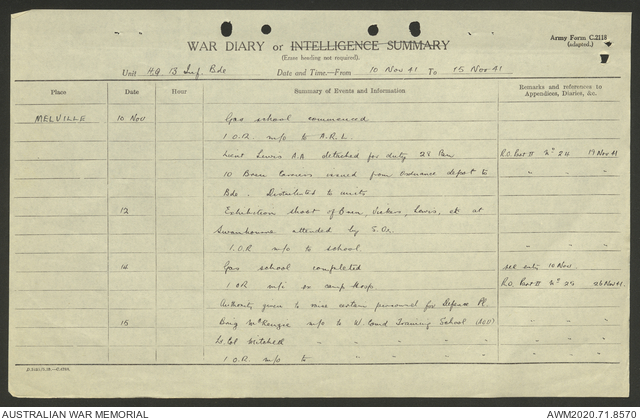 Army Form C.2118
(adapted.)
WAR DIARY or INTELLIGENCE SUMMARY
(Erase heading not required).
Unit HQ 13 Inf. Bde Date and Time.—From 10 Nov 41 To 15 Nov 41
Place Date Hour Summary of Events and Information Remarks and references to Appendices, Diaries, &c.
MELVILLE 10 Nov Gas school commenced
1 O.R. m/o to A.R.L.
Lieut Lewis A.A detached for duty 28 Bn R.O. Part II No 24 19 Nov 41
10 Bren Carriers issued from Ordnance depot to " " "
Bde. Distributed to units
12 Exhibition shoot of Bren, Vickers, Lewis, etc. at
Swanbourne attended by
1. O.R m/o to school " " "
14 Gas school completed see entry 10 Nov.
1 OR m/i ex camp Hosp R.O. Part II No 25 26 Nov 41.
Authority given to raise certain personnel for Defence Pl.
15 m/o to W. Comd Training School " " "
Lt Col Mitchell " " " " " " "
1. O.R. m/o to " " " " " "
AUSTRALIAN WAR MEMORIAL AWM2020.71.8570